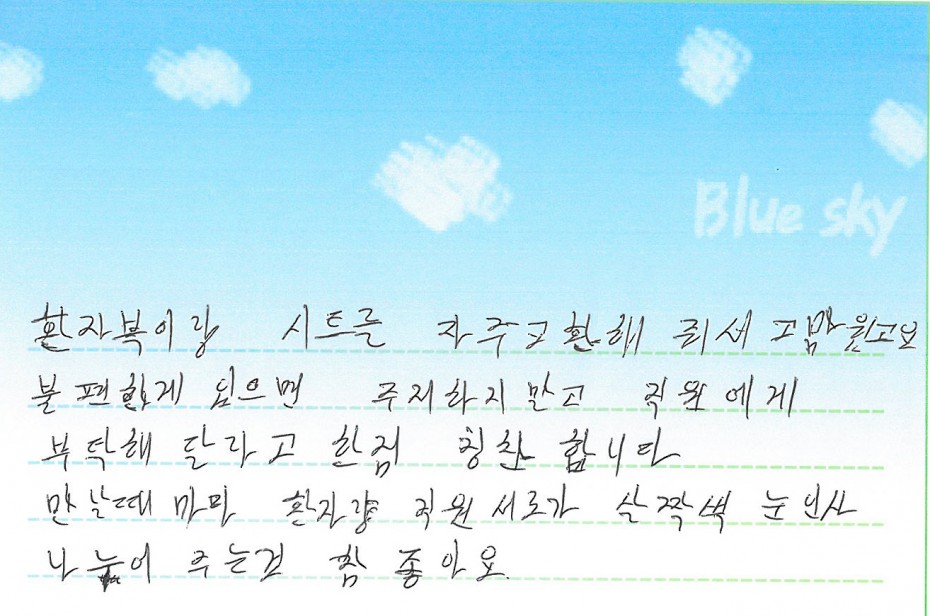 Blue sky
환자복이랑 시트를 자주 교환해 줘서 고맙웠고요
불편한게 있으면 주저하지말고 직원에게
부탁해 달라고 한점 칭찬 합니다
만날때 마다 환자랑 직원 서로가 살짝씩 눈인사
나눞어 주는건 참 좋아요.